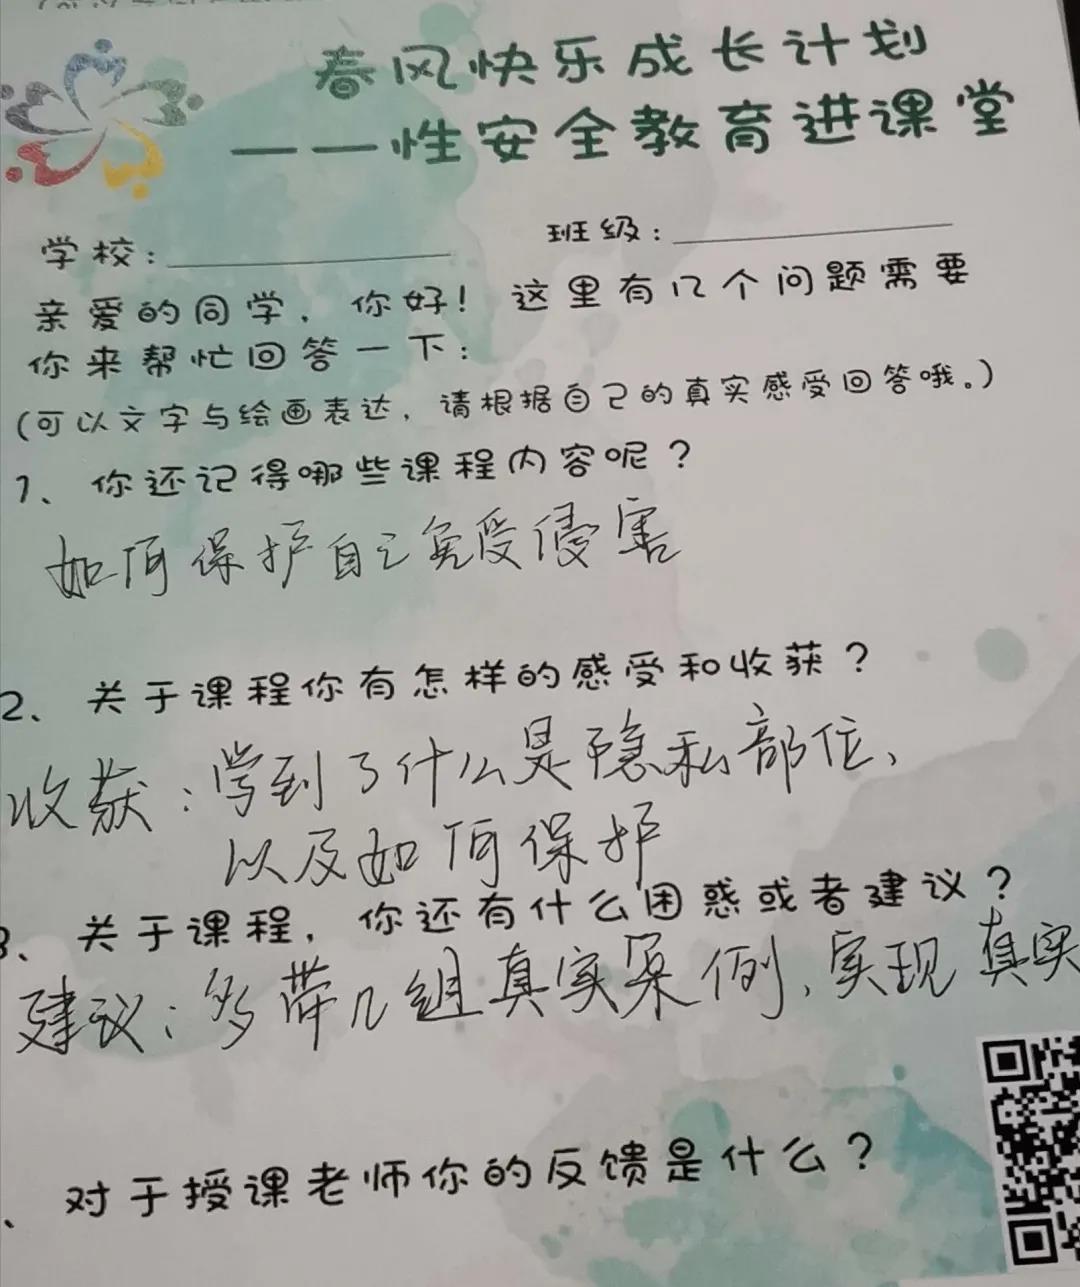 春风快乐成长计划
——性安全教育进课堂
学校：
班级：
亲爱的同学，你好！这里有几个问题需要
你来帮忙回答一下：
(可以文字与绘画表达，请根据自己的真实感受回答哦。)
1、你还记得哪些课程内容呢？
如何保护自己免受侵害
2、关于课程你有怎样的感受和收获？
收获：学到了什么是隐私部位、
以及如何保护
3、关于课程，你还有什么困惑或者建议？
建议：多带几组真实案例，实现真实
、对于授课老师你的反馈是什么？